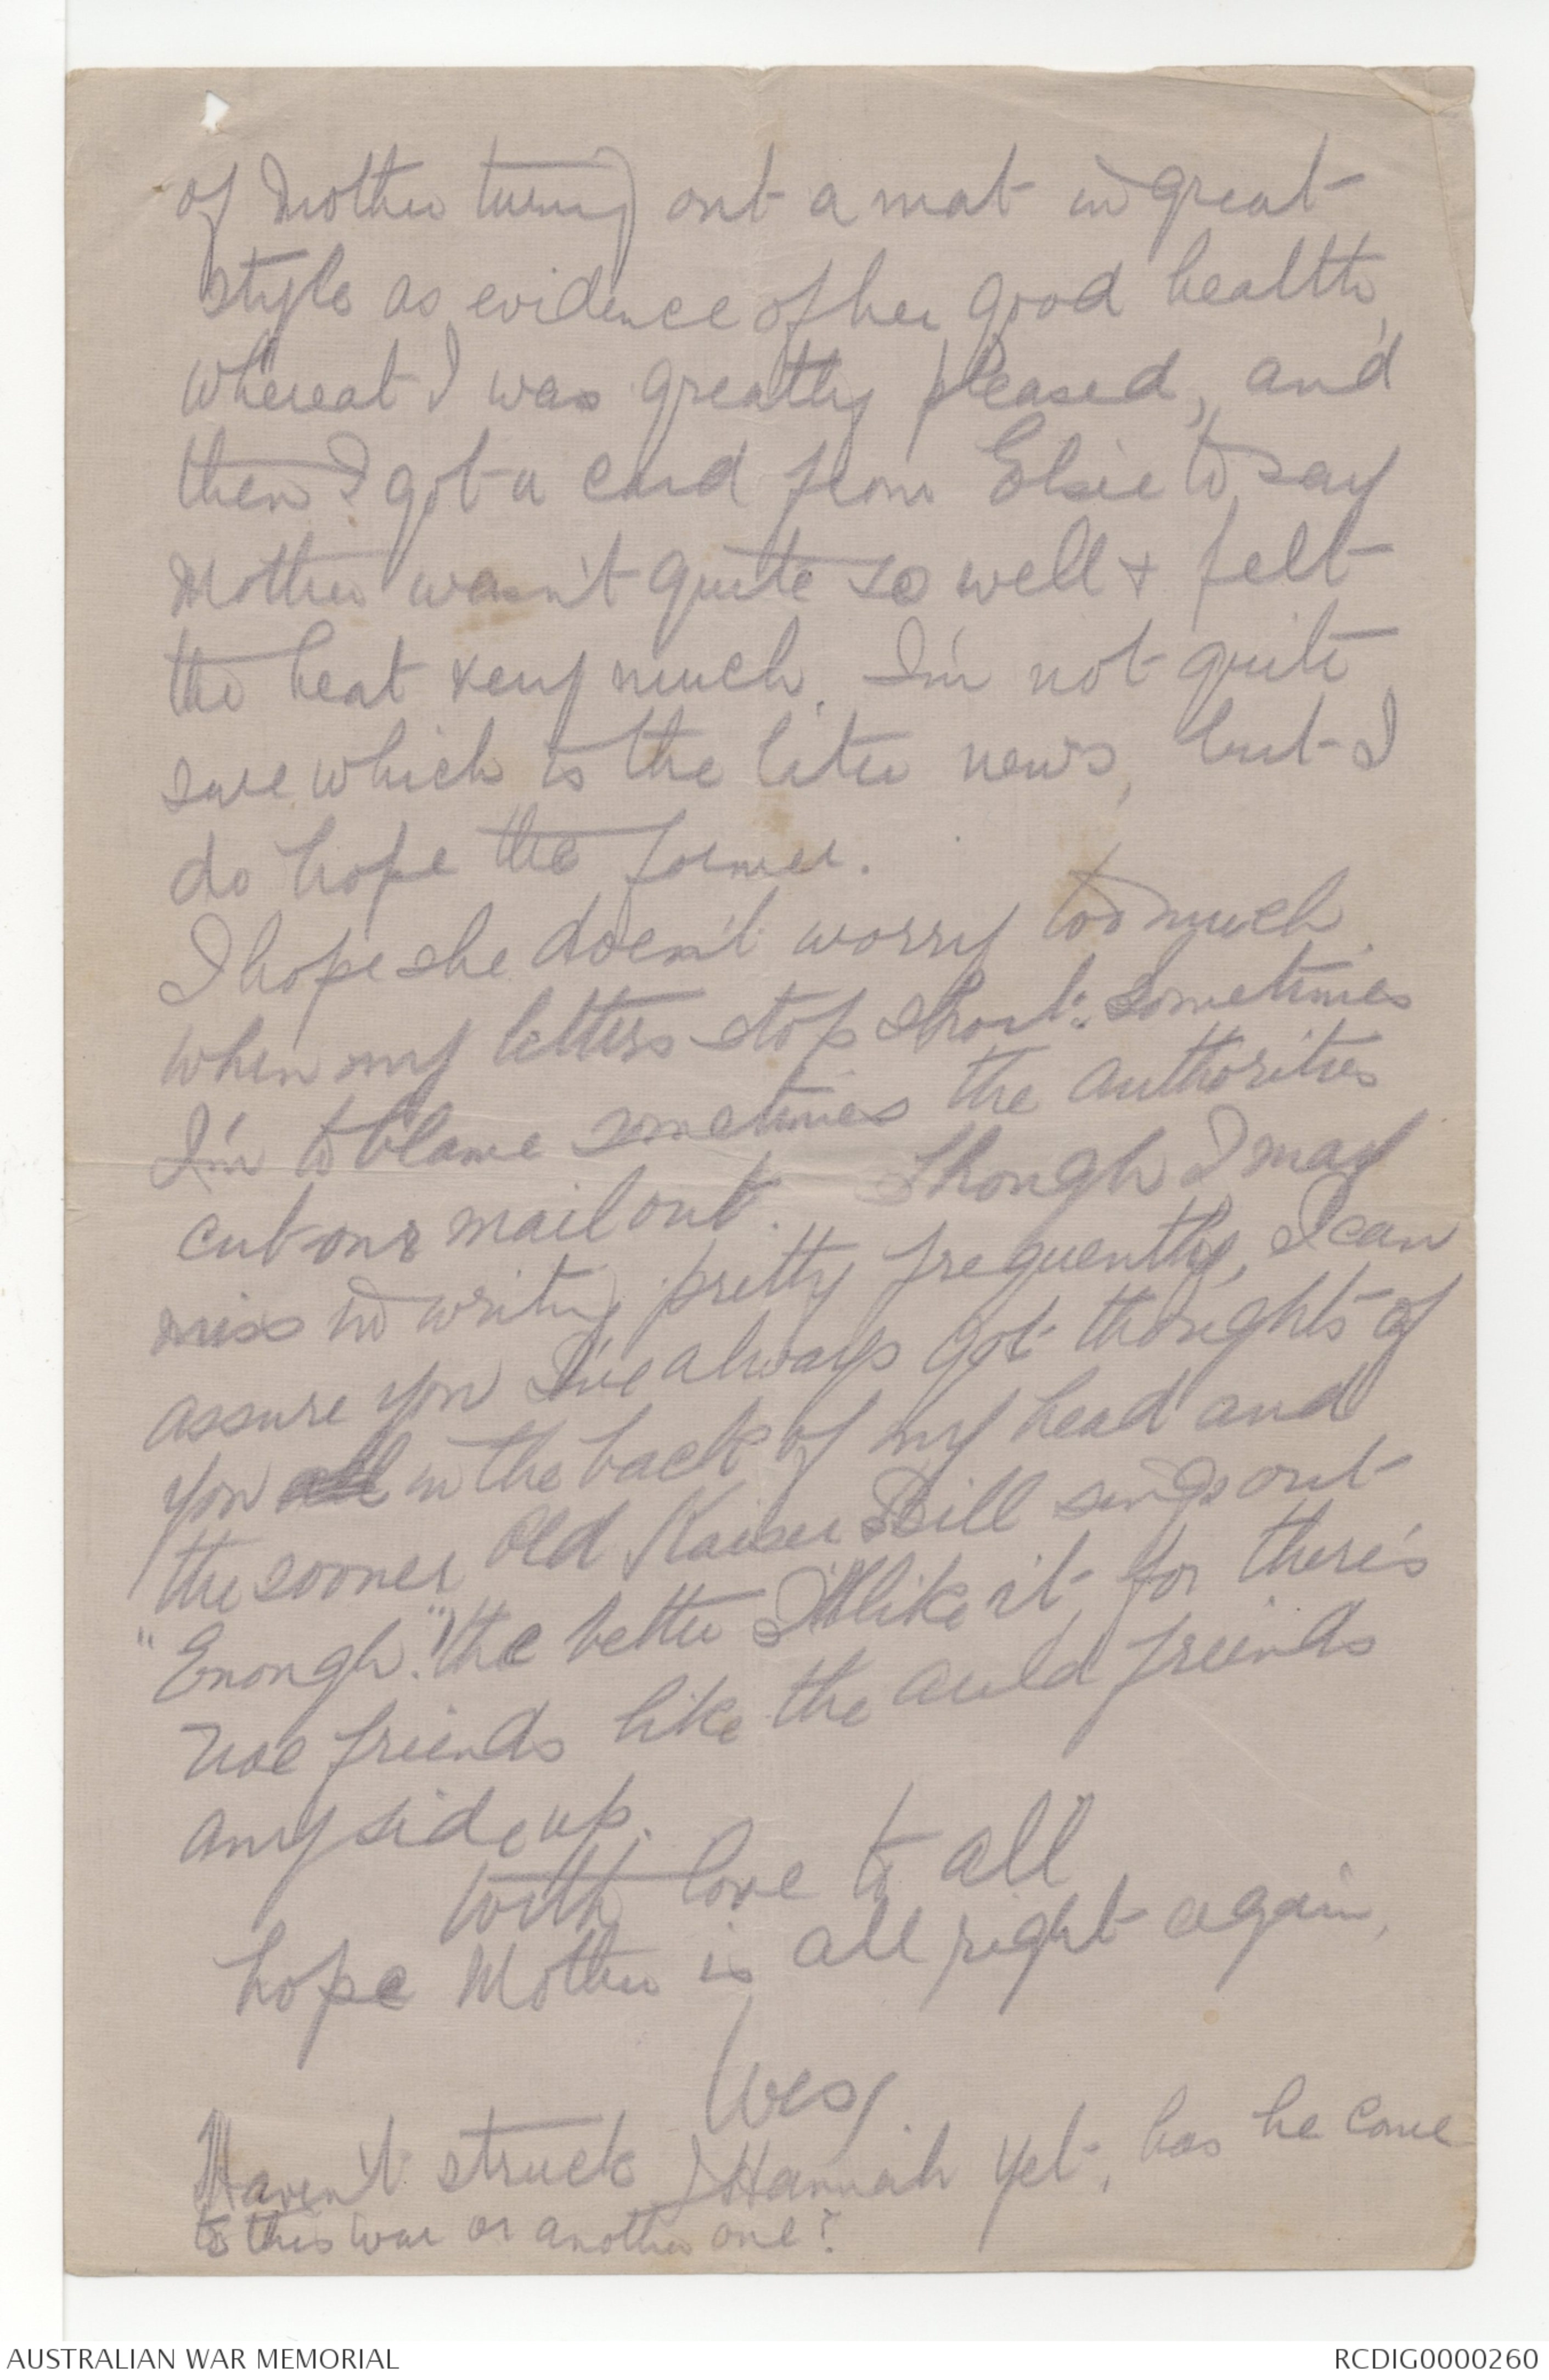 of Mother turning out a mat in great
style as evidence of her good health,
whereat I was greatly pleased, and
then I got a card from Elsie to say
Mother wasn't quite so well & felt
the heat very much. I'm not quite
sure which is the later news, but I
do hope the former.
I hope she doesn't worry too much
when my letters stop short: sometimes
I'm to blame sometimes the authorities
cut our mail out. Though I may
miss in writing pretty frequently, I can
assure you I've always got thoughts of
you all in the back of my head and
the sooner Old Kaiser Bill sings out
"Enough." the better I'll like it, for there's
nae friends like the auld friends
any side up.
With love to all
hope Mother is all right again,
Wes.
Haven't struck J Hannah yet, has he come
to this war or another one?
AUSTRALIAN WAR MEMORIAL
RCDIG0000260